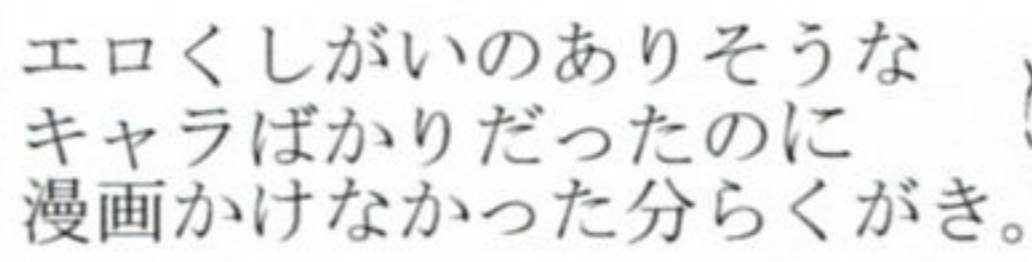 エロくしがいのありそうな
キャラばかりだったのに
漫画かけなかった分らくがき。